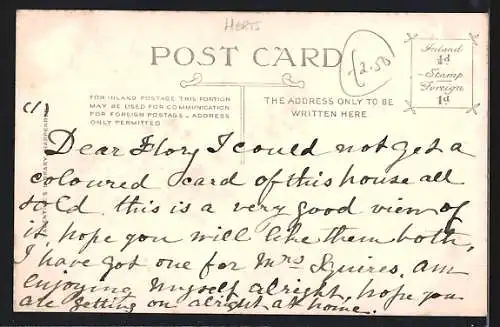 HERTS
POST CARD
£2-50
Inland
½d
Stamp
Foreign
1d
FOR INLAND POSTAGE THIS PORTION
MAY BE USED FOR COMMUNICATION
FOR FOREIGN POSTAGE – ADDRESS
ONLY PERMITTED
THE ADDRESS ONLY TO BE
WRITTEN HERE
(1)
Dear Flory I could not get a
coloured card of this house all
sold. this is a very good view of
it, hope you will like them both,
I have got one for Mrs Squires. am
enjoying myself alright, hope you
are getting on alright at home.
LIBRARY